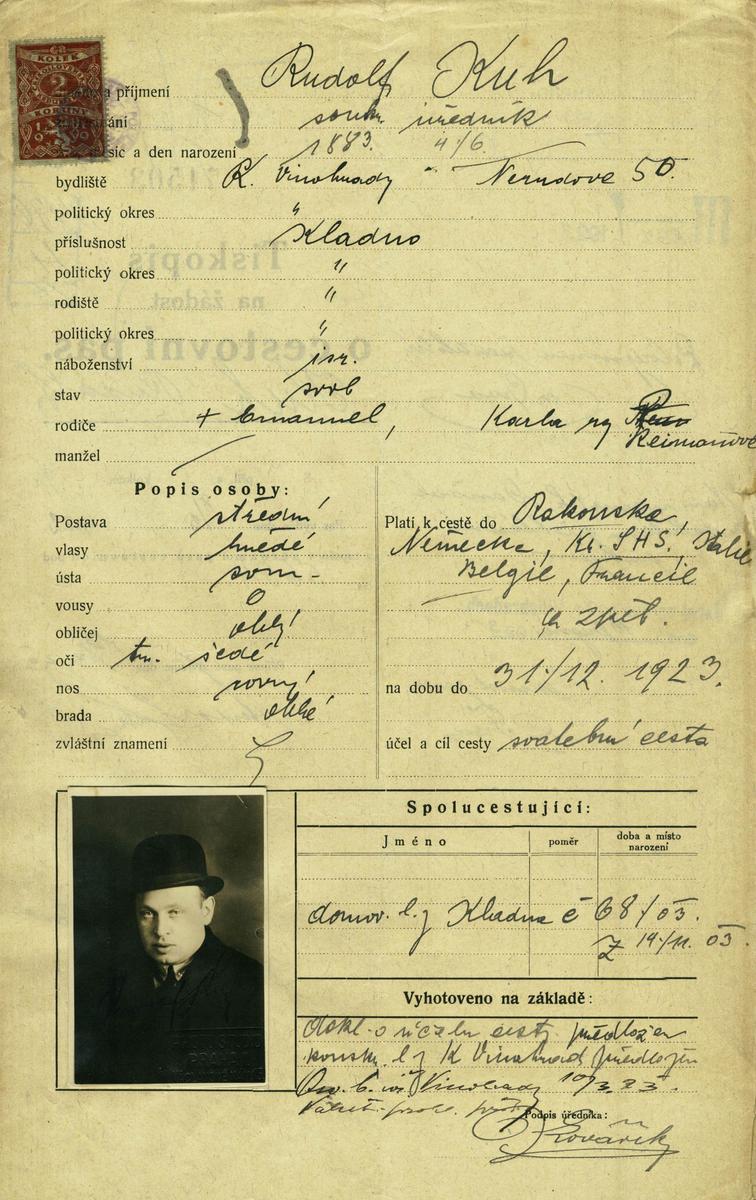 KOLEK
2
KORUNY
Rudolf Kuh
a příjmení
soukr. úředník
a den narození 1883. 4/6
bydliště K. Vinohrady - Nerudova 50.
politický okres "
příslušnost Kladno
politický okres "
rodiště "
politický okres "
náboženství isr.
stav svob
rodiče + Emanuel, Karla
Reimanové
manžel
Popis osoby:
Postava střední
vlasy hnědé
ústa soum.
vousy 0
obličej oblý
oči tm. šedé
nos rovný
brada oblá
zvláštní znamení
Platí k cestě do Rakouska,
Německa, Kr. SHS, Italie
Belgie, Francie
a zpět.
na dobu do 31/12. 1923.
účel a cíl cesty svatební cesta
Spolucestující:
Jméno poměr doba a místo narození
domov. l. z Kladna č 68/03.
Z 19/11. 03.
Vyhotoveno na základě:
Dokl. o účelu cesty předložen
l. z K Vinohrad předložen
Vinohrady 10/3.23.
Podpis úředníka:
Kovářík